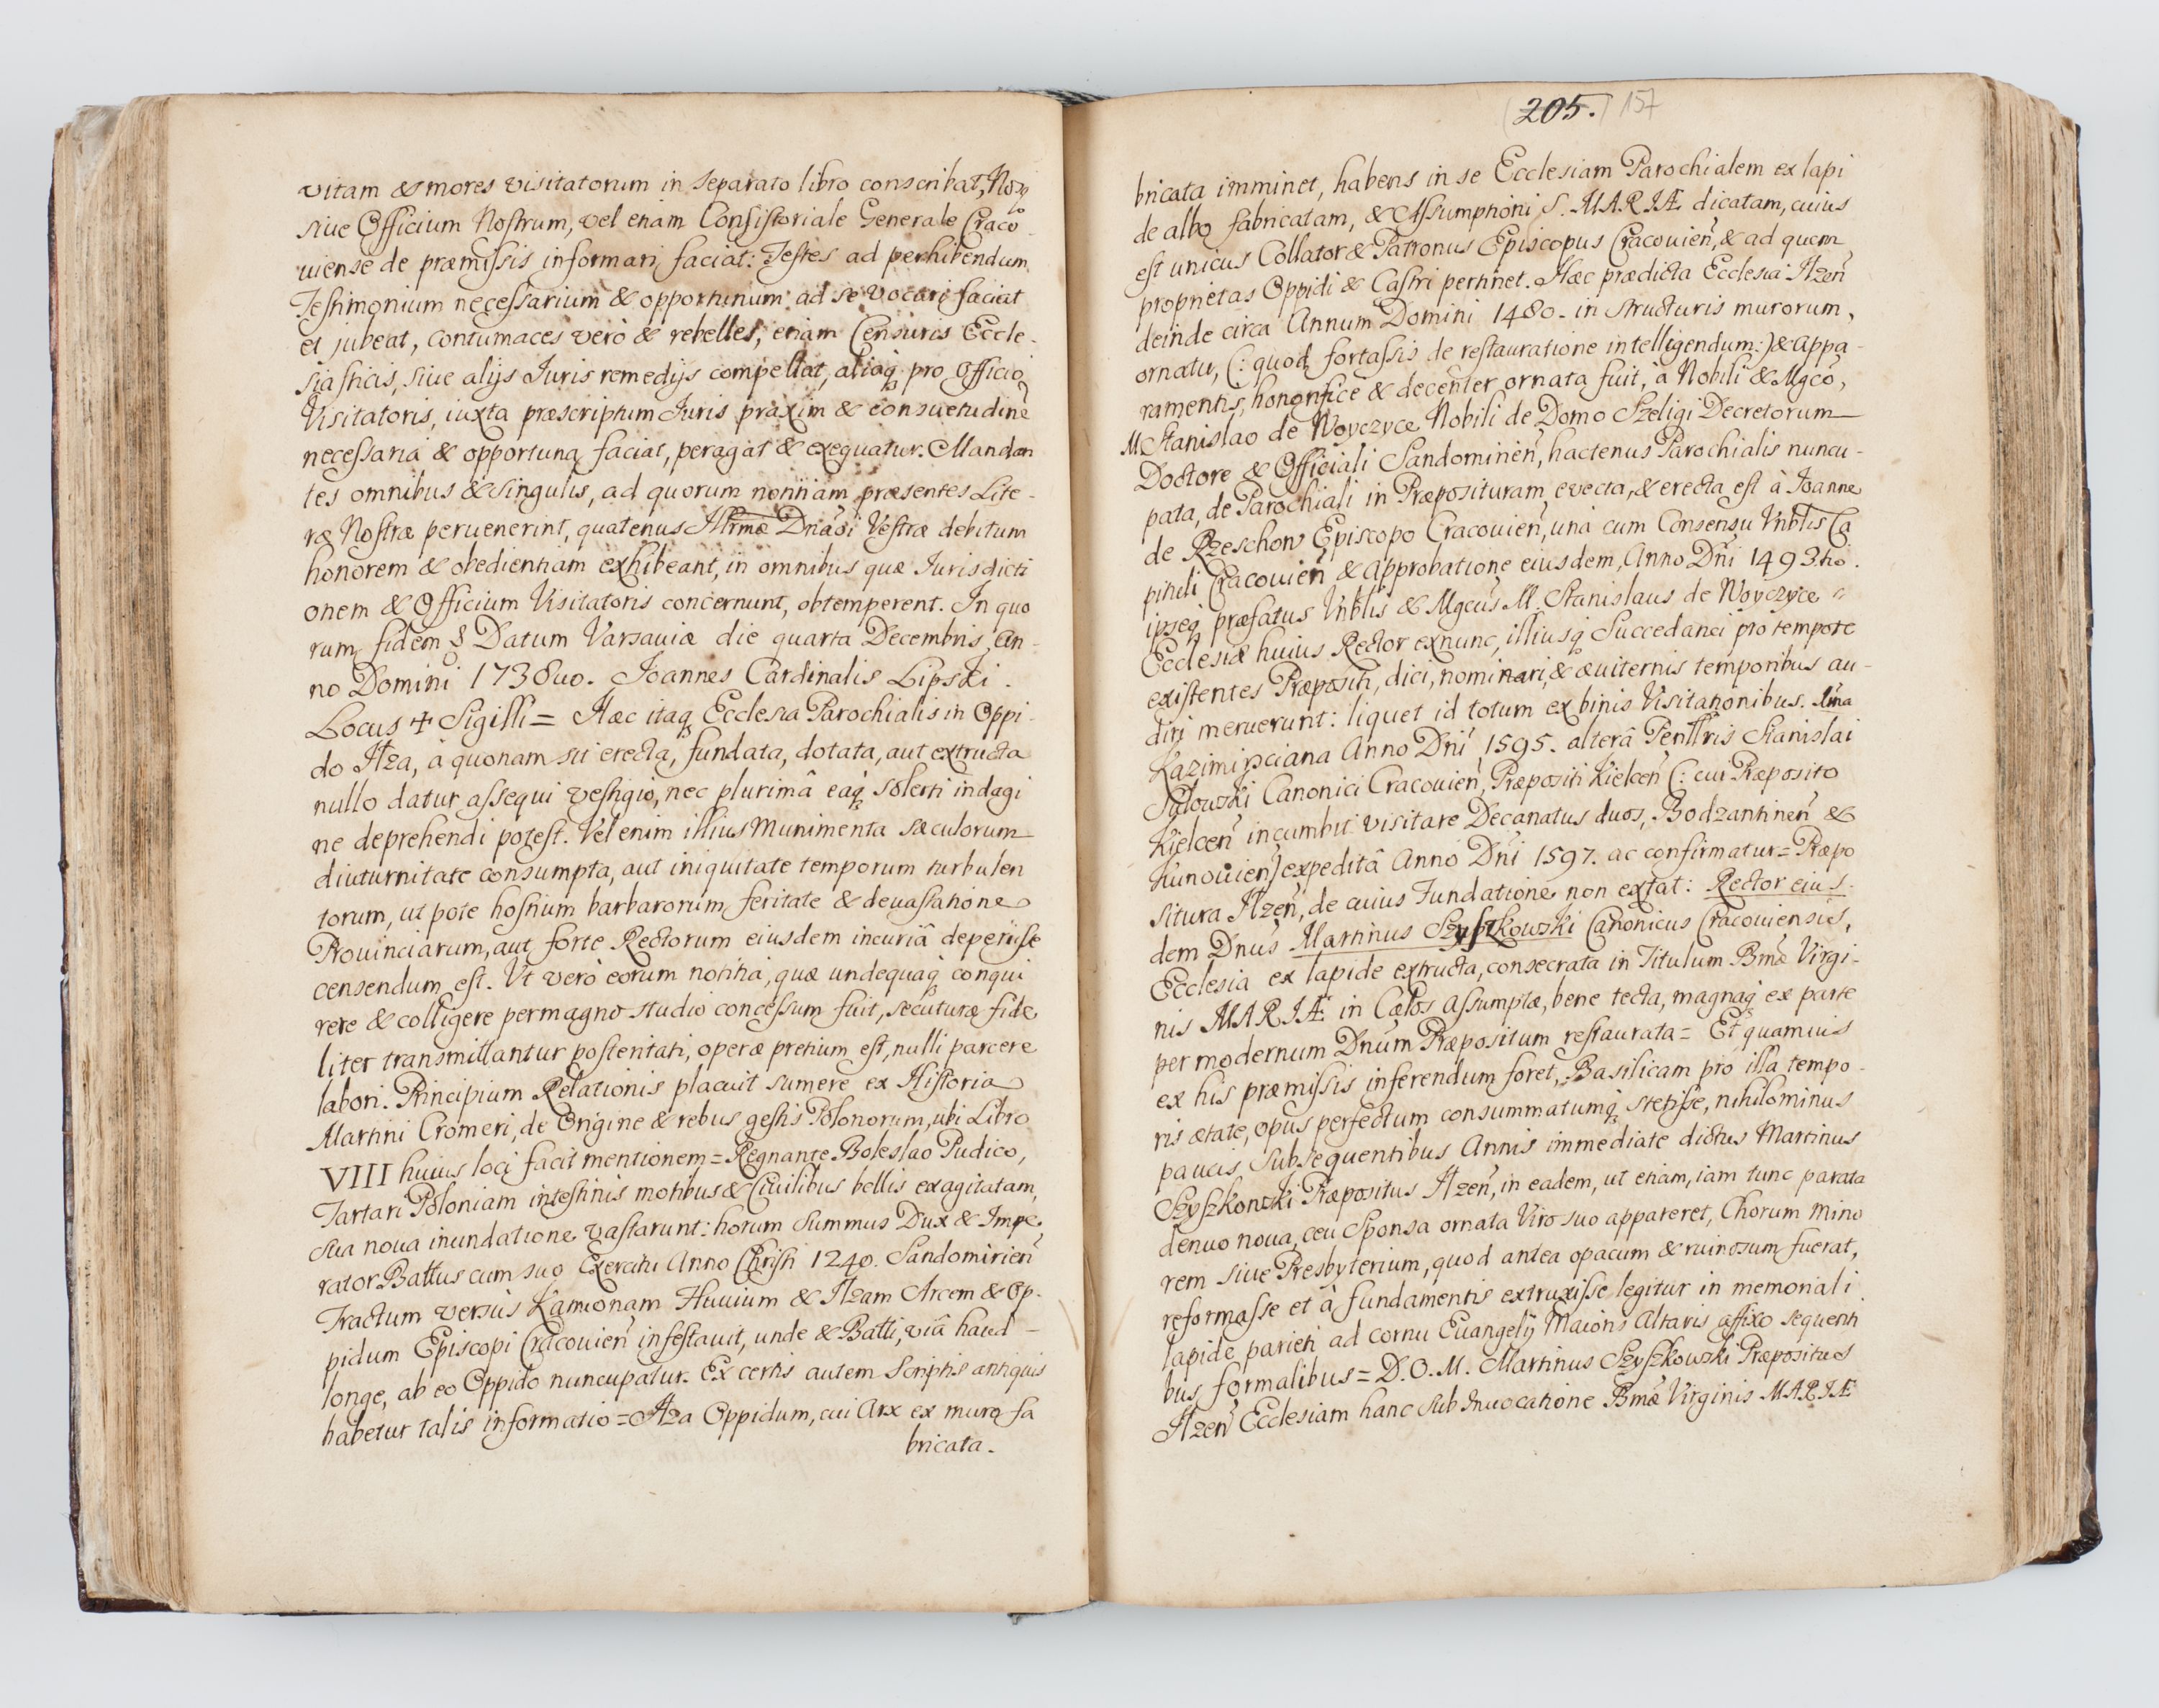 vitam & mores visitatorum in separato libro conscribat, Nosq
siue Officium Nostrum, vel etiam Consistoriale Generale Craco
uiense de præmissis informari faciat: Testes ad perhibendum
Testimonium necessarium & opportunum ad se vocari faciat
et jubeat, contumaces verò & rebelles, etiam Censuris Eccle-
siasticis, siue alijs Juris remedijs compellat, aliaq pro Officio
Visitatoris, iuxta præscriptum Juris praxim & consuetudinē
necessaria & opportuna faciat, peragat & exequatur. Mandan
tes omnibus & singulis, ad quorum notitiam præsentes Lite-
ræ Nostræ peruenerint, quatenus Illrmæ Dnaoi Vestræ debitum
honorem & obedientiam exhibeant, in omnibus quæ Jurisdicti
onem & Officium Visitatoris concernunt, obtemperent. In quo
rum fidem § Datum Varsauiæ die quarta Decembris, An-
no Domini 1738uo. Joannes Cardinalis Lipski.
Locus + Sigilli = Hæc itaq Ecclesia Parochialis in Oppi-
do Ilza, à quonam sit erecta, fundata, dotata, aut extructa
nullo datur assequi vestigio, nec plurimâ eaq solerti indagi
ne deprehendi potest. Vel enim illius Munimenta sæculorum
diuturnitate consumpta, aut iniquitate temporum turbulen
torum, ut pote hostium barbarorum feritate & deuastatione
Prouinciarum, aut forte Rectorum eiusdem incuriâ deperiisse
censendum est. Vt verò eorum notitia, quæ undequaq conqui
rere & colligere permagno studio concessum fuit, secuturæ fide
liter transmittantur posteritati, operæ pretium est, nulli parcere
labori. Principium Relationis placuit sumere ex Historia
Martini Cromeri, de Origine & rebus gestis Polonorum, ubi Libro
VIII huius loci facit mentionem = Regnante Boleslao Pudico,
Tartari Poloniam intestinis motibus & Ciuilibus bellis exagitatam,
sua noua inundatione vastarunt: horum Summus Dux & Impe-
rator Battus cum suo Exercitu Anno Christi 1240. Sandomirien
Tractum versùs Kamionam Fluuium & Ilzam Arcem & Op-
pidum Episcopi Cracouien infestauit, unde & Batti, viâ haud-
longe, ab eo Oppido nuncupatur. Ex certis autem Scriptis antiquis
habetur talis informatio = Ilza Oppidum, cui Arx ex muro fa
bricata.
(205.) 157
bricata imminet, habens in se Ecclesiam Parochialem ex lapi
de albo fabricatam, & Assumptioni S. MARIÆ dicatam, cuius
est unicus Collator & Patronus Episcopus Cracouien, & ad quem
proprietas Oppidi & Castri pertinet. Hæc prædicta Ecclesia Ilzen
deinde circa Annum Domini 1480. in structuris murorum,
ornatu, (: quod fortassis de restauratione intelligendum :) & appa-
ramentis, honorifice & decenter ornata fuit, à Nobili & Mgco,
M Stanislao de Woyczyce Nobili de Domo Szeligi Decretorum
Doctore & Officiali Sandominien, hactenus Parochialis nuncu-
pata, de Parochiali in Præposituram evecta, & erecta est à Joanne
de Rzeschow Episcopo Cracouien, unà cum Consensu Vnblis Ca
pituli Cracouien & Approbatione eiusdem, Anno Dni 1493tio.
ipseq præfatus Vnblis & Mgcus M. Stanislaus de Woyczyce
Ecclesiæ huius Rector exnunc, illiusq Succedanei pro tempore
existentes Præpositi, dici, nominari, & æuiternis temporibus au-
diri meruerunt: liquet id totum ex binis Visitationibus. Una
Kazimirsciana Anno Dni 1595. alterâ Penllris Stanislai
Canonici Cracouien, Præpositi Kielcen (: cui Præposito
Kielcen incumbit visitare Decanatus duos, Bodzantinen &
Kunouien) expeditâ Anno Dni 1597. ac confirmatur = Præpo
situra Ilzen, de cuius Fundatione non extat: Rector eius-
dem Dnus Martinus Szyszkowski Canonicus Cracouiensis,
Ecclesia ex lapide extructa, consecrata in Titulum Bmæ Virgi-
nis MARIÆ in Cælos Assumptæ, bene tecta, magnaq ex parte
per modernum Dnum Præpositum restaurata = Et quamuis
ex his præmissis inferendum foret, Basilicam pro illa tempo-
ris ætate, opus perfectum consummatumq stetisse, nihilominus
paucis, subsequentibus Annis immediate dictus Martinus
Szyszkowski Præpositus Ilzen, in eadem, ut etiam, iam tunc parata
denuo noua, ceu Sponsa ornata Viro suo appareret, Chorum mino
rem siue Presbyterium, quod antea opacum & ruinosum fuerat,
reformasse et à fundamentis extruxisse legitur in memoriali
lapide parieti ad cornu Euangelij Maioris Altaris affixo sequenti
bus formalibus = D. O. M. Martinus Szyszkowski Præpositus
Ilzen Ecclesiam hanc sub Inuocatione Bmæ Virginis MARIÆ